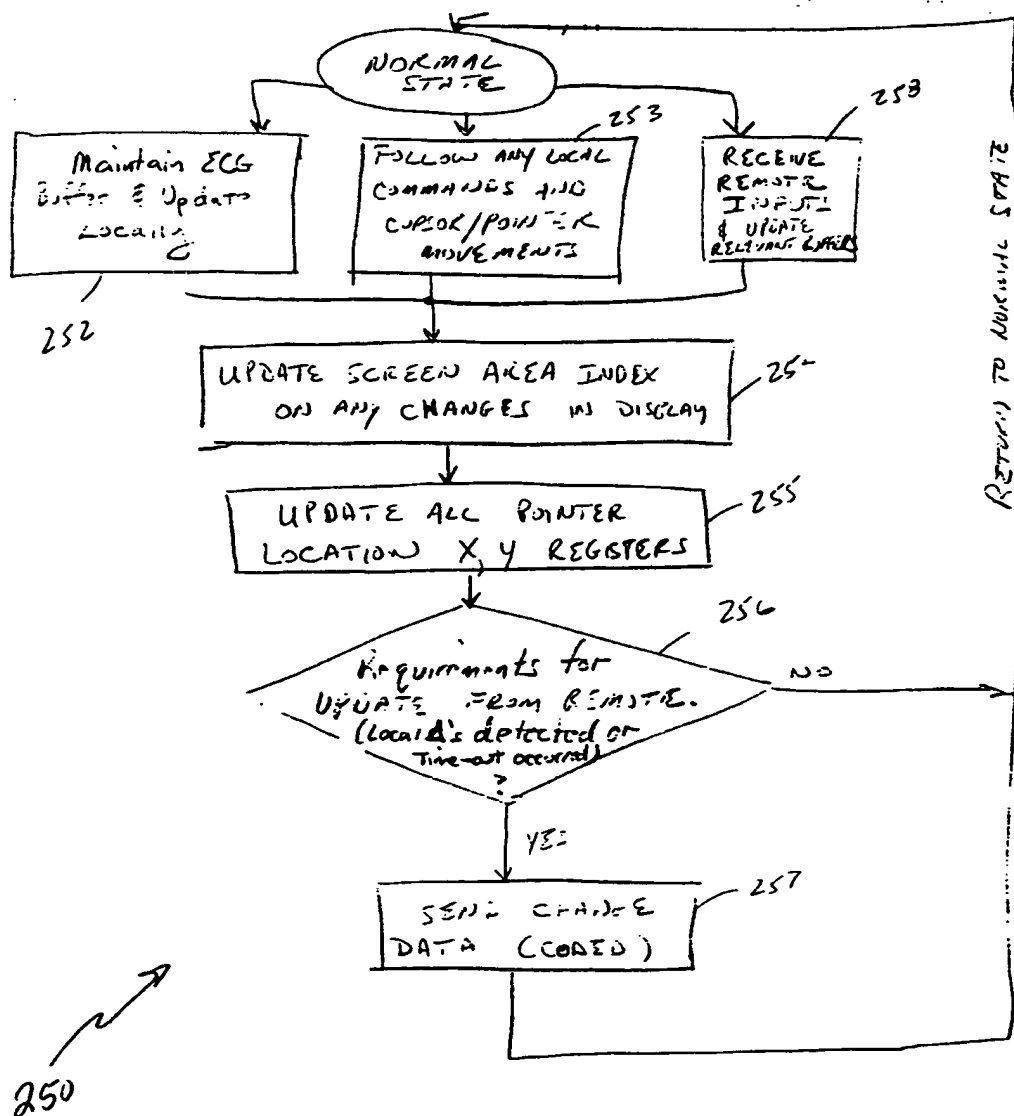 NORMAL
STATE
253
253
Maintain ECG
Buffer & Update
Locally
FOLLOW ANY LOCAL
COMMANDS AND
CURSOR/POINTER
MOVEMENTS
RECEIVE
REMOTE
INPUTS
& UPDATE
RELEVANT BUFFERS
252
UPDATE SCREEN AREA INDEX
ON ANY CHANGES IN DISPLAY
UPDATE ALL POINTER
LOCATION X, Y REGISTERS
255
256
Requirements for
UPDATE FROM REMOTE.
(Local Δ's detected or
Time-out occurred)
?
NO
YES
SEND CHANGE
DATA (CODED)
257
RETURN TO NORMAL STATE
250